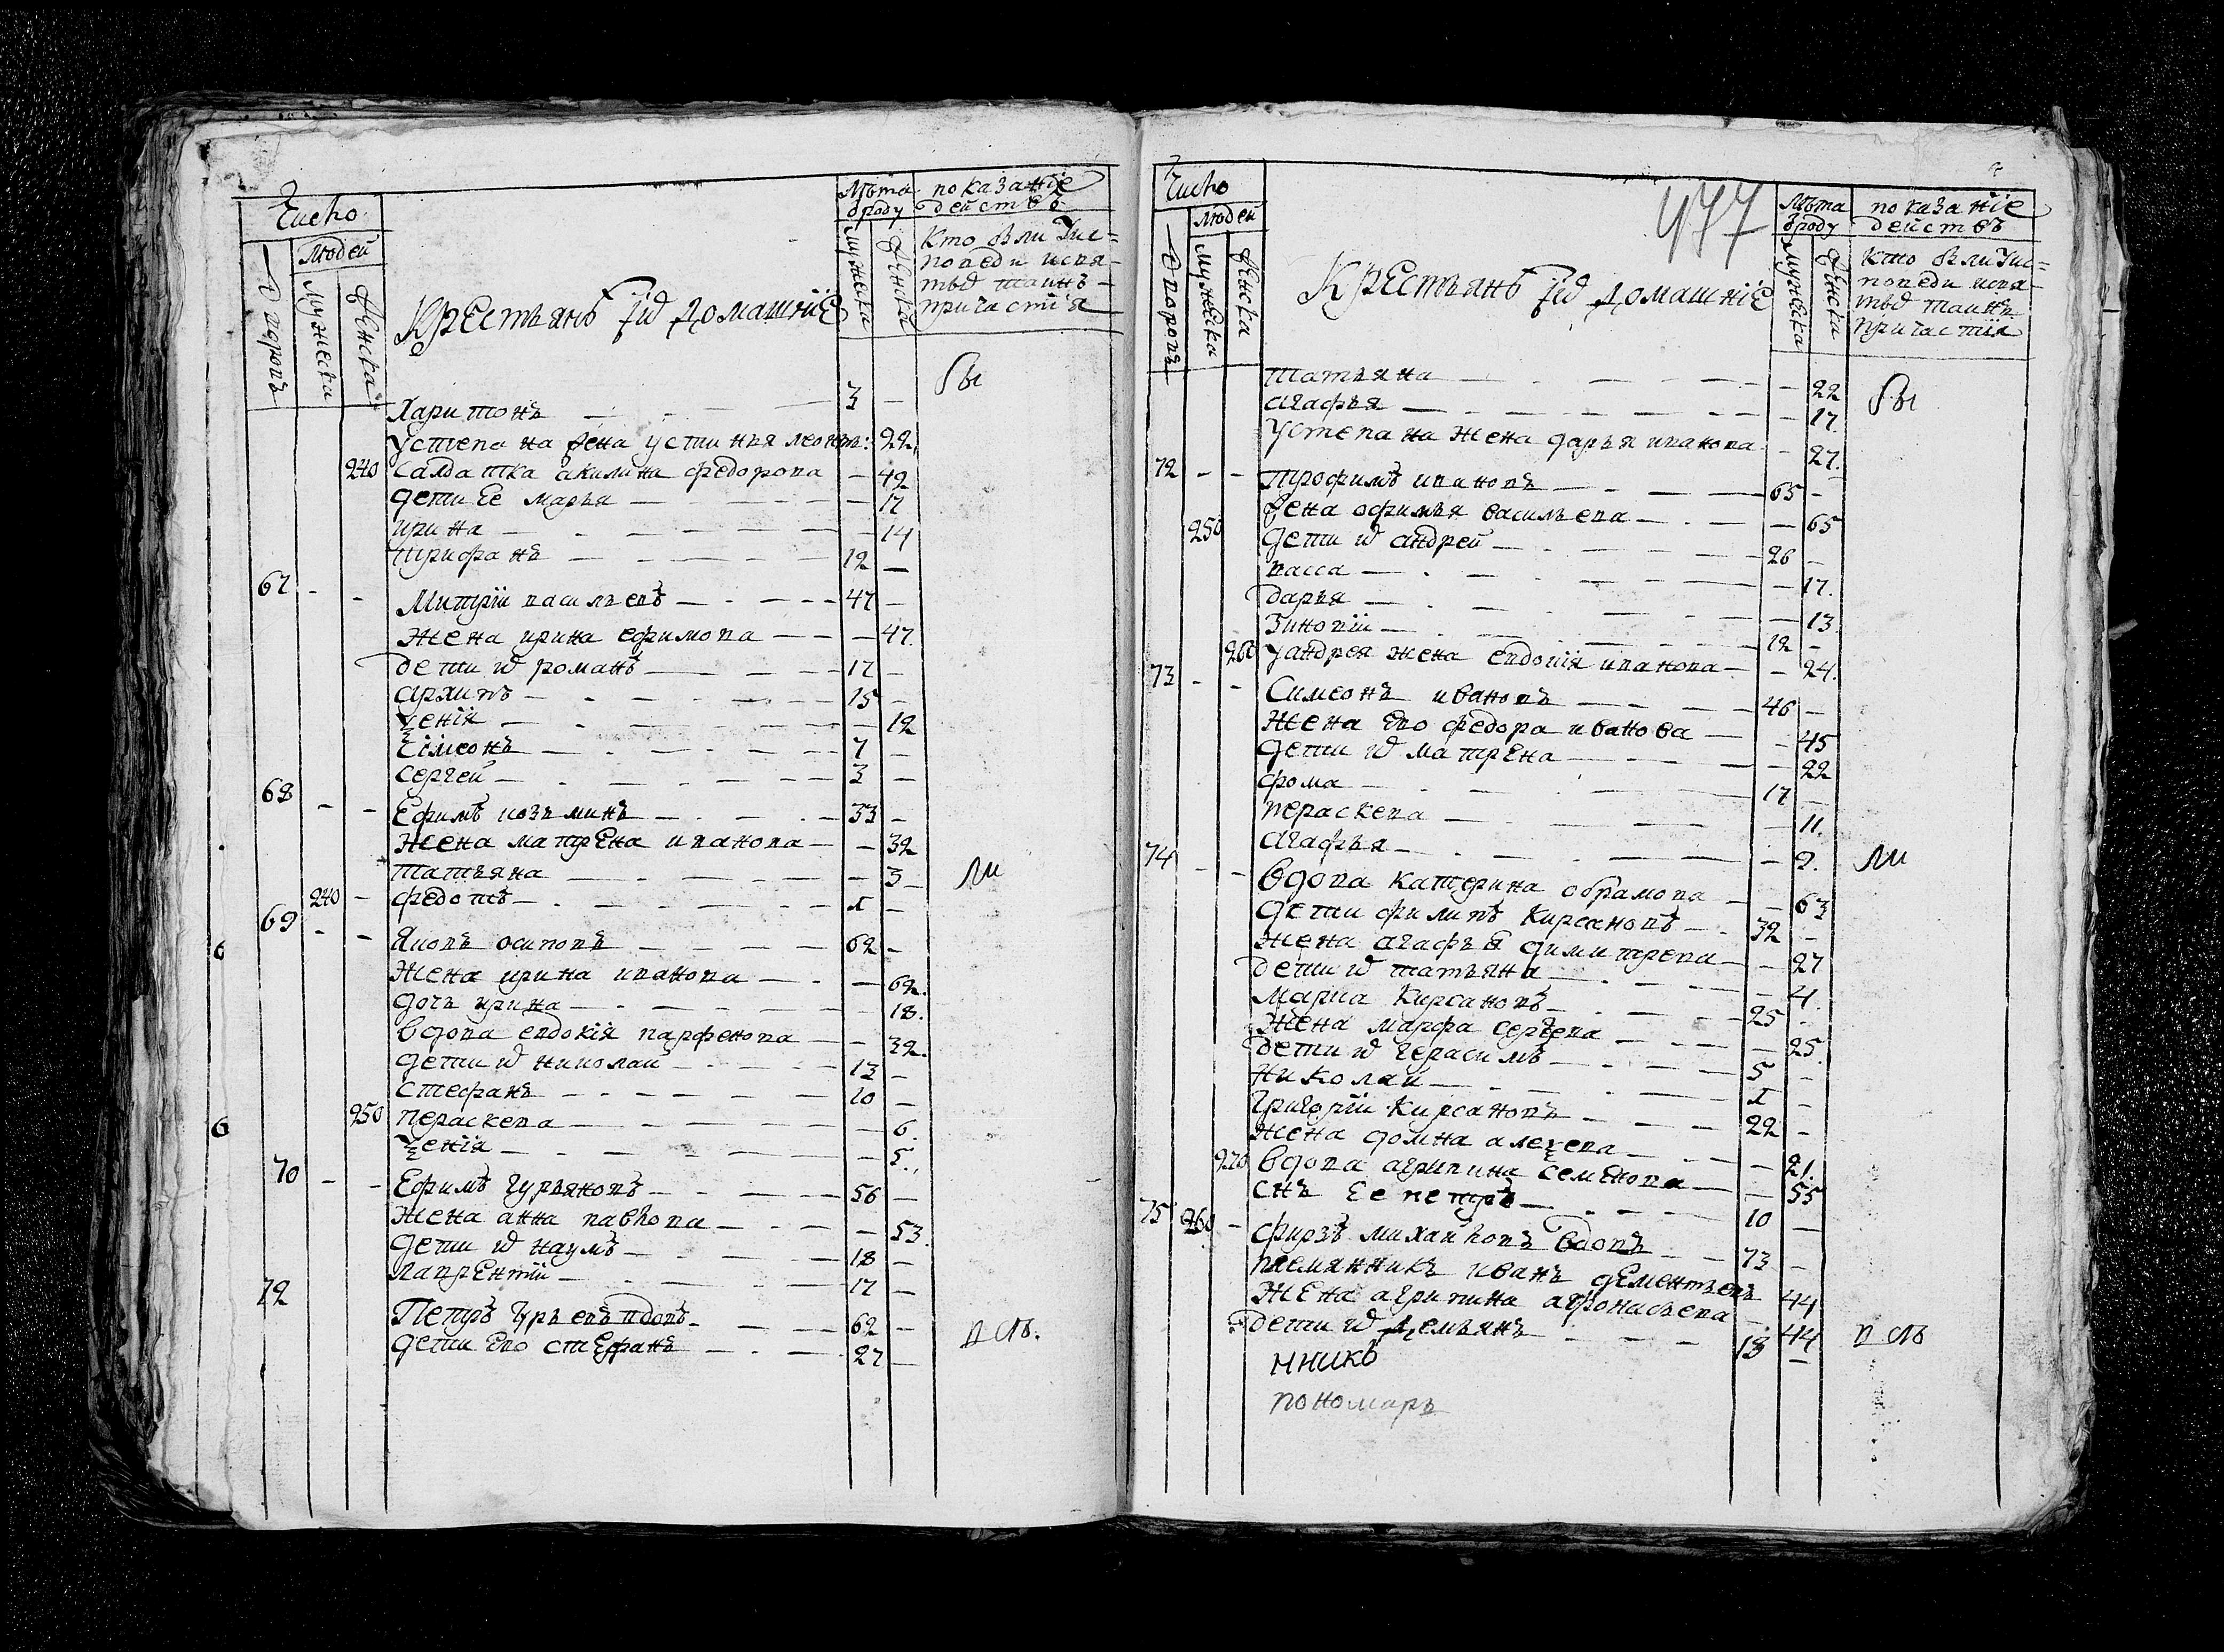 Число
Людей
Дворовъ
Мужеска
Женска
Крестьянъ их домашние
Лѣта
ѿ роду
Мужеска
Женска
показанїе
действъ
Кто были у ис=
поведи и свя-
тыѿ таинъ
причастїя
были
Харитонъ — 3 —
У степана жена устинья леонть: 22
240 Салдатка акилина федорова — 42
дети ее марья — 17
ирина — 14
трифанъ — 12 —
67 - - Митрїи васильевъ — 47 —
Жена ирина ефимова — 47
дети их романъ — 17 —
архипъ — 15 —
ѯенїя — 12
Сїмеонъ — 7 —
Сергей — 3 —
68 - - Ефимъ козьминъ — 33 —
Жена матрена иванова — 32
Татьяна — 3
240 - федотъ — 1 —
69 - - Яковъ осиповъ — 62 —
Жена ирина иванова — 62
дочь ирина — 18
вдова евдокїя парфенова — 32
дети ѿ николай — 13 —
Стефанъ — 10 —
250 Пераскева — 6
ѯенїя — 5
70 - - Ефимъ гурьяновъ — 56 —
Жена анна павлова — 53
дети ѿ наумъ — 18 —
лаврентїи — 17 —
72 Петръ гурьевъ вдовъ — 62 —
дети ево стефанъ — 27 —
Число
Людей
Дворовъ
Мужеска
Женска
477
Крестьянъ их домашнїе
Лѣта
ѿ роду
Мужеска
Женска
показанїе
действъ
Кто были у ис=
поведи и свя-
тыѿ таинъ
причастїя
Татьяна — 22
агафья — 17
У степана жена дарья иванова — 27
72 - - Трофимъ ивановъ — 65 —
Жена офимья васильева — 65
250 дети ѿ андрей — 26 —
васса — 17
дарья — 13
Зиновїи — 12 —
260 У андрея жена евдокїя иванова — 24
73 - - Симеонъ ивановъ — 46 —
Жена ево федора иванова — 45
дети ѿ матрена — 22
фома — 17 —
пераскева — 11
агафья — 2
74 - - вдова катерина обрамова — 63
дети филипъ Кирсановъ — 32 —
жена агафья димитрева — 27
дети ѿ татьяна — 4
Марка Кирсановъ — 25 —
Жена марфа сергева — 25
дети ѿ герасимъ — 5 —
Николай — 1 —
Григорїи Кирсановъ — 22 —
Жена домна алеѯева — 21
270 вдова агрипина Семенова — 55
снъ Ее петръ — 10 —
75 260 - фирзъ михайловъ вдовъ — 73 —
племянникъ иванъ дементьевъ 44
Жена агрипина афонасьева — 44
дети ѿ Демьянъ — 13 —
нникъ
пономарь